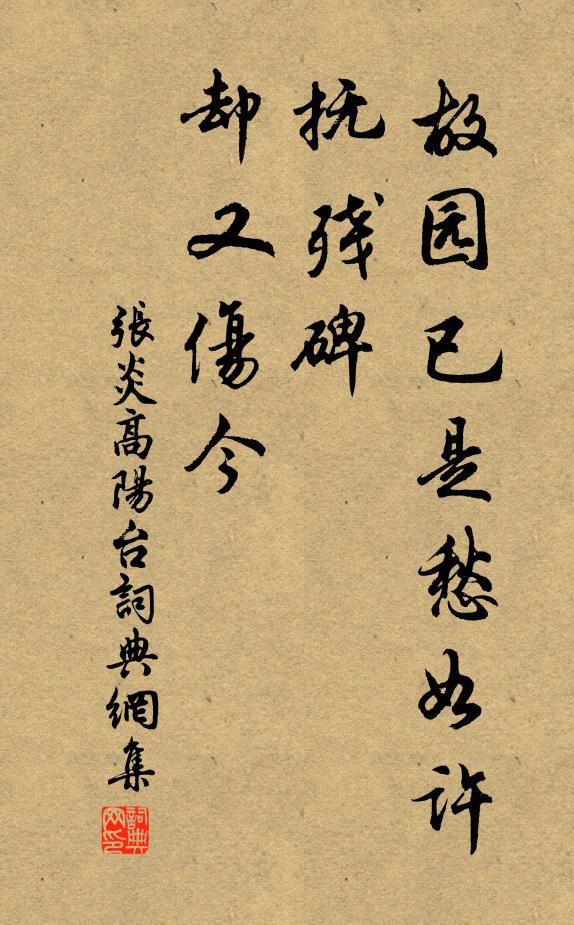 故园已是愁如许
抚残碑
却又傷今
張炎高陽台詞典網集
詞典网印